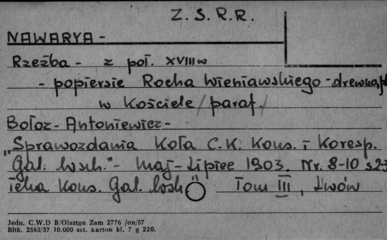 Z. S. R. R.
NAWARYA -
Rzeźba - z poł. XVIII w
- popiersie Rocha Wieniawskiego - drewna,
w Kościele /paraf./
Bołoz-Antoniewicz -
„Sprawozdania Koła C.K. Kons. i Koresp.
Gal. wsch." - Maj - Lipiec 1903, Nr. 8-10 s 23
Teka Kons. Gal. wsch Tom III, Lwów
Jedn. C.W.D B/Olsztyn Zam 2776 /on/57
Bltk. 2563/57 10.000 szt. karton kl. 7 g 220.